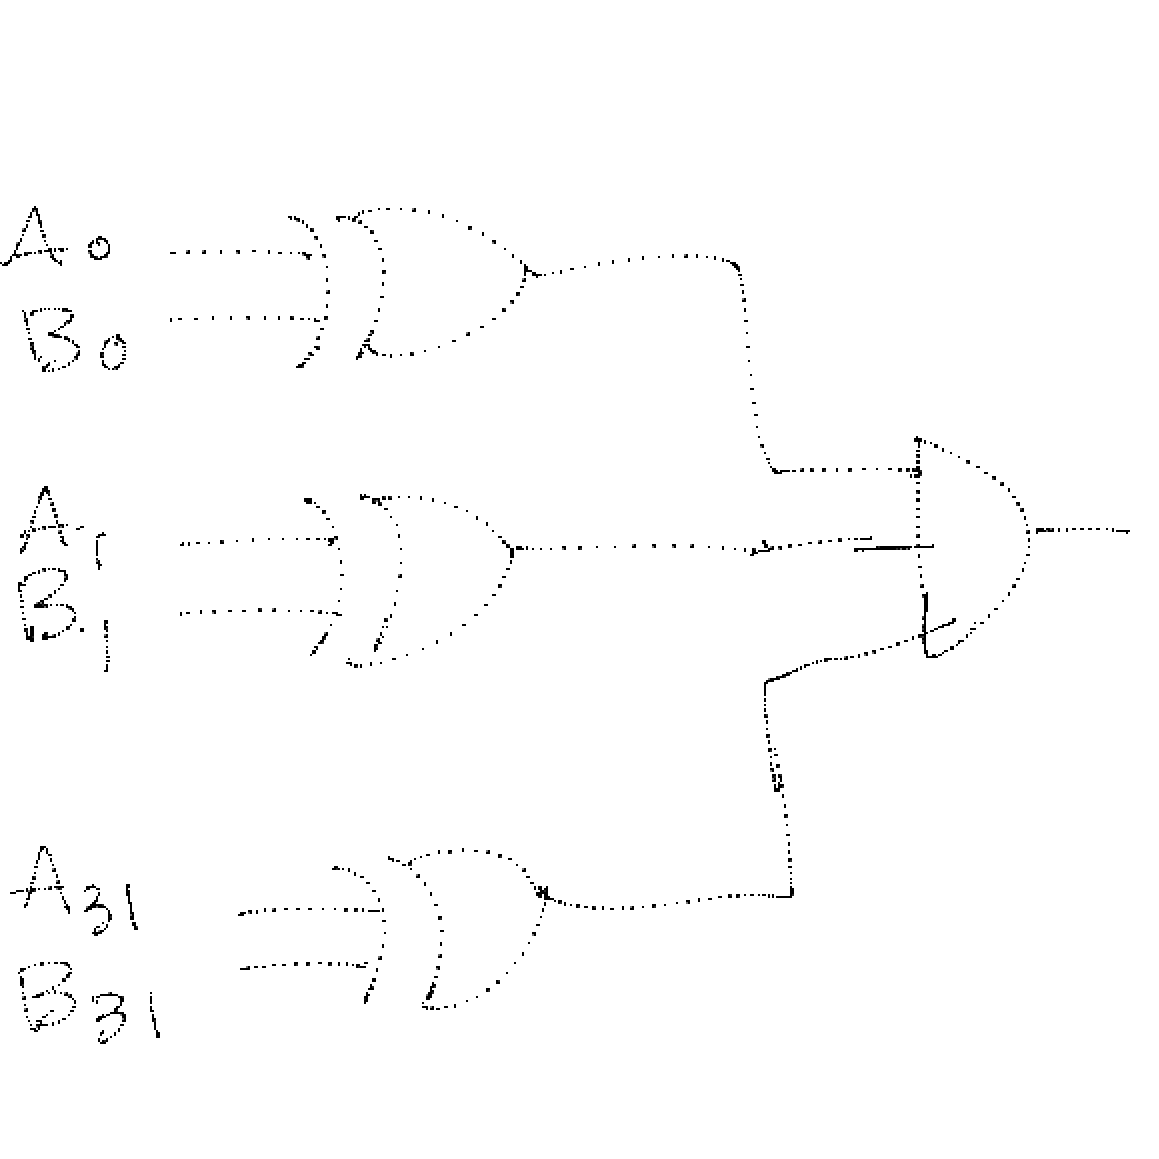 A0
B0
A1
B1
A31
B31